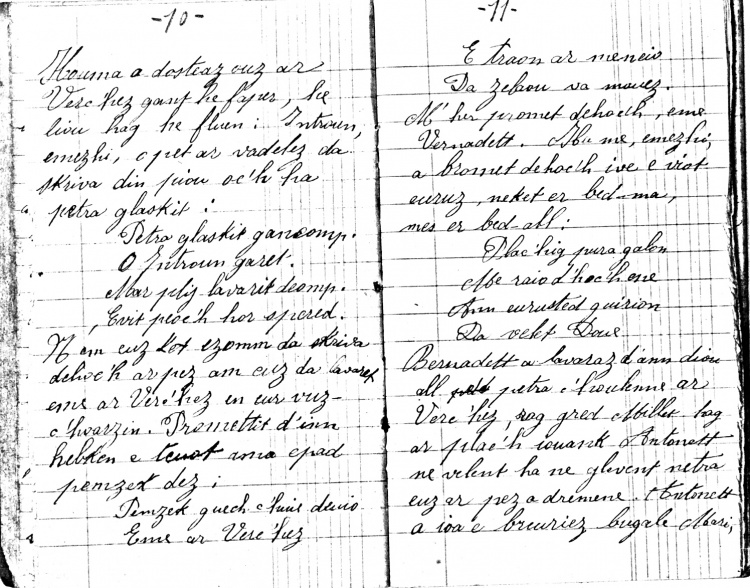 -10-
Houma a dosteaz ouz ar
Verc'hez gant he faper, he
liou hag he fluen : Introun,
emezhi, opet ar vadelez da
skriva din piou oc'h ha
petra glaskit :
Petra glaskit ganeomp.
O Introun garet.
Mar plij lavarit deomp.
Evit peoc'h hor spered.
N'em euz ket ezomm da skriva
dehoc'h ar pez am euz da lavaret
eme ar Verc'hez en eur vuz-
c'hoarzin. Promettit d'inn
hebken e teuot ama epad
pemzek dez :
Pemzek guech c'huui deuio
Eme ar Verc'hez
-11-
E traon ar meneio
Da zebou va mouez.
M' her promet dehoc'h, eme
Vernadett. Ha me, emezhi,
a bromet dehoc'h ive e viot
euruz, neket er bed-ma,
mes er bed-all :
Plac'hig pura galon
Me raio d'hoc'h ene
Ann eurusted guirion
Da velet Doue
Bernadett a lavaraz d'ann diou
all petra c'houlenne ar
Verc'hez, rag gred Millet hag
ar plac'h iouank Antonett
ne velent ha ne glevent netra
euz ar pez a dremene. Antonett
a ioa e breuriez bugale Mari,